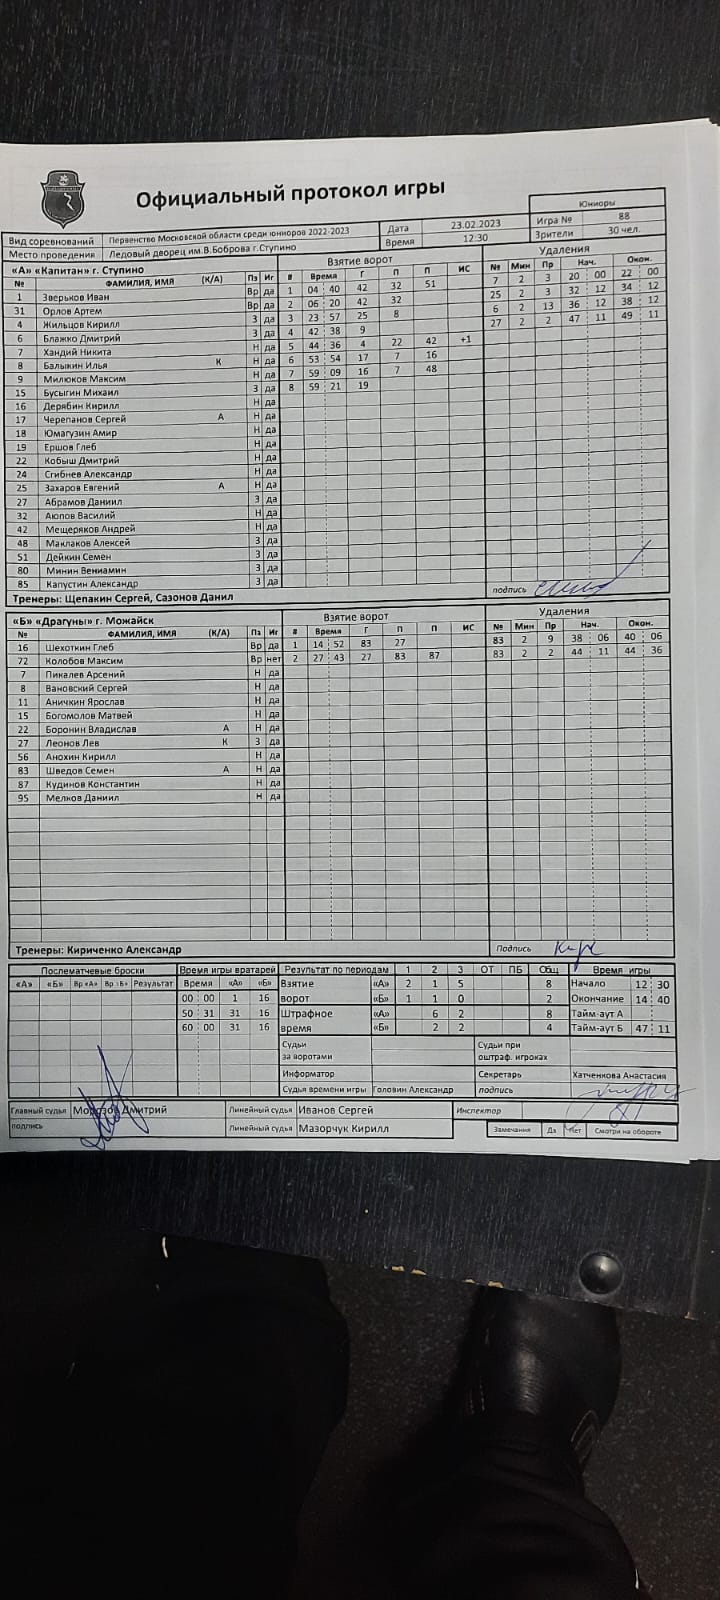 Официальный протокол игры
Юниоры
Вид соревнований Первенство Московской области среди юниоров 2022-2023 Дата 23.02.2023 Игра № 88
Место проведения Ледовый дворец им.В.Боброва г.Ступино Время 12:30 Зрители 30 чел.
«А» «Капитан» г. Ступино Взятие ворот Удаления
№ ФАМИЛИЯ, ИМЯ (К/А) Пз Иг # Время Г П П ИС № Мин Пр Нач. Окон.
1 Зверьков Иван Вр да 1 04 40 42 32 51 7 2 3 20 00 22 00
31 Орлов Артем Вр да 2 06 20 42 32 25 2 3 32 12 34 12
4 Жильцов Кирилл З да 3 23 57 25 8 6 2 13 36 12 38 12
6 Блажко Дмитрий З да 4 42 38 9 27 2 2 47 11 49 11
7 Хандий Никита Н да 5 44 36 4 22 42 +1
8 Балыкин Илья К Н да 6 53 54 17 7 16
9 Милюков Максим Н да 7 59 09 16 7 48
15 Бусыгин Михаил З да 8 59 21 19
16 Дерябин Кирилл Н да
17 Черепанов Сергей А Н да
18 Юмагузин Амир Н да
19 Ершов Глеб Н да
22 Кобыш Дмитрий Н да
24 Сгибнев Александр Н да
25 Захаров Евгений А Н да
27 Абрамов Даниил З да
32 Аюпов Василий Н да
42 Мещеряков Андрей Н да
48 Маклаков Алексей З да
51 Дейкин Семен З да
80 Минин Вениамин З да
85 Капустин Александр З да
Тренеры: Щепакин Сергей, Сазонов Данил подпись
«Б» «Драгуны» г. Можайск Взятие ворот Удаления
№ ФАМИЛИЯ, ИМЯ (К/А) Пз Иг # Время Г П П ИС № Мин Пр Нач. Окон.
16 Шехоткин Глеб Вр да 1 14 52 83 27 83 2 9 38 06 40 06
72 Колобов Максим Вр нет 2 27 43 27 83 87 83 2 2 44 11 44 36
7 Пикалев Арсений Н да
8 Вановский Сергей Н да
11 Аничкин Ярослав Н да
15 Богомолов Матвей Н да
22 Боронин Владислав А Н да
27 Леонов Лев К З да
56 Анохин Кирилл Н да
83 Шведов Семен А Н да
87 Кудинов Константин Н да
95 Мелков Даниил Н да
Тренеры: Кириченко Александр Подпись
Послематчевые броски Время игры вратарей Результат по периодам 1 2 3 ОТ ПБ Общ Время игры
«А» «Б» Вр «А» Вр «Б» Результат Время «А» «Б» Взятие «А» 2 1 5 8 Начало 12 30
00 00 1 16 ворот «Б» 1 1 0 2 Окончание 14 40
50 31 31 16 Штрафное «А» 6 2 8 Тайм-аут А
60 00 31 16 время «Б» 2 2 4 Тайм-аут Б 47 11
Судьи за воротами Судьи при оштраф. игроках
Информатор Секретарь Хатченкова Анастасия
Судья времени игры Головин Александр подпись
Главный судья Морозов Дмитрий Линейный судья Иванов Сергей Инспектор
подпись Линейный судья Мазорчук Кирилл Замечания Да Нет Смотри на обороте